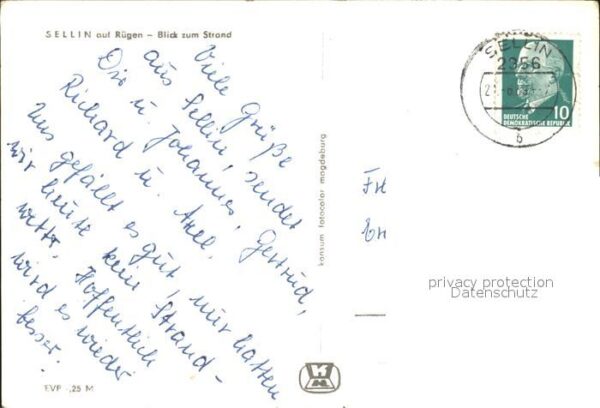 SELLIN auf Rügen – Blick zum Strand
Viele Grüße
aus Sellin, sendet
Dir u. Johannes, Gertrud,
Richard u. Axel.
Uns gefällt es gut, nur hatten
wir heute kein Strand-
wetter. Hoffentlich
wird es wieder
besser.
EVP -,25 M
konsum fotocolor magdeburg
SELLIN
2356
b
DEUTSCHE
DEMOKRATISCHE REPUBLIK
10
privacy protection
Datenschutz